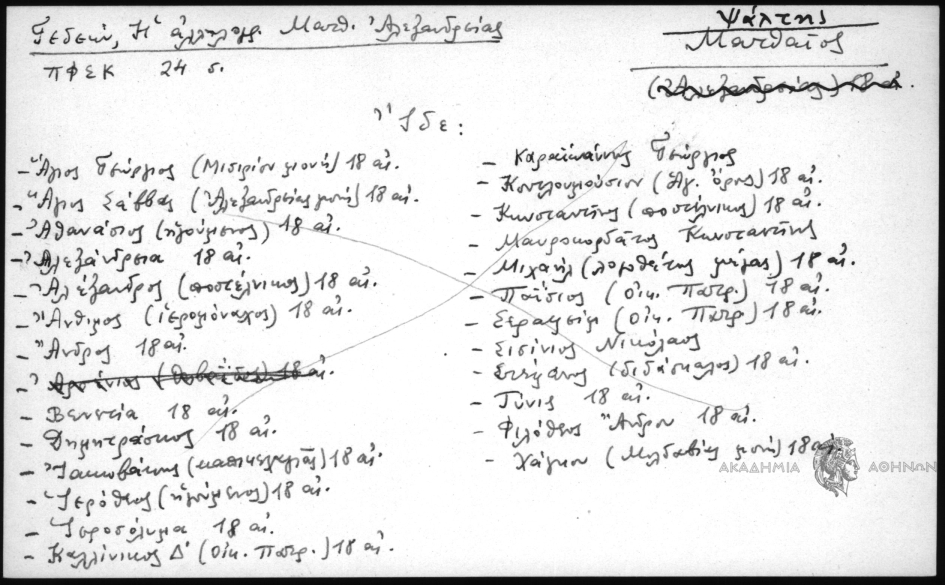 Γεδεών, Ἡ ἀλληλογρ. Ματθ. Ἀλεξανδρείας
ΠΦΣΚ 24 σ.
Ψάλτης
Ματθαῖος
(Ἀλεξανδρείας) 18 αἰ.
Ἴδε:
– Ἅγιος Γεώργιος (Μισιρίου μονή) 18 αἰ.
– Ἅγιος Σάββας (Ἀλεξανδρείας μονή) 18 αἰ.
– Ἀθανάσιος (ἡγούμενος) 18 αἰ.
– Ἀλεξάνδρεια 18 αἰ.
– Ἀλέξανδρος (ποστέλνικος) 18 αἰ.
– Ἄνθιμος (ἱερομόναχος) 18 αἰ.
– Ἄνδρος 18 αἰ.
– Ἀρσένιος (Θηβαΐδος) 18 αἰ.
– Βενετία 18 αἰ.
– Δημητράσκος 18 αἰ.
– Ἰακωβάκης (καπικεχαγιᾶς) 18 αἰ.
– Ἱερόθεος (ἡγούμενος) 18 αἰ.
– Ἱεροσόλυμα 18 αἰ.
– Καλλίνικος Δ' (Οἰκ. Πατρ.) 18 αἰ.
– Καραϊωάννης Γεώργιος
– Κουτλουμούσιον (Ἁγ. Ὄρος) 18 αἰ.
– Κωνσταντῖνος (ποστέλνικος) 18 αἰ.
– Μαυροκορδᾶτος Κωνσταντῖνος
– Μιχαήλ (λογοθέτης μέγας) 18 αἰ.
– Παΐσιος (Οἰκ. Πατρ.) 18 αἰ.
– Σεραφείμ (Οἰκ. Πατρ.) 18 αἰ.
– Σισίνιος Νικόλαος
– Στέφανος (διδάσκαλος) 18 αἰ.
– Τύνις 18 αἰ.
– Φιλόθεος Ἄνδρου 18 αἰ.
– Χάγκου (Μολδαβίας μονή) 18 αἰ.
ΑΚΑΔΗΜΙΑ ΑΘΗΝΩΝ